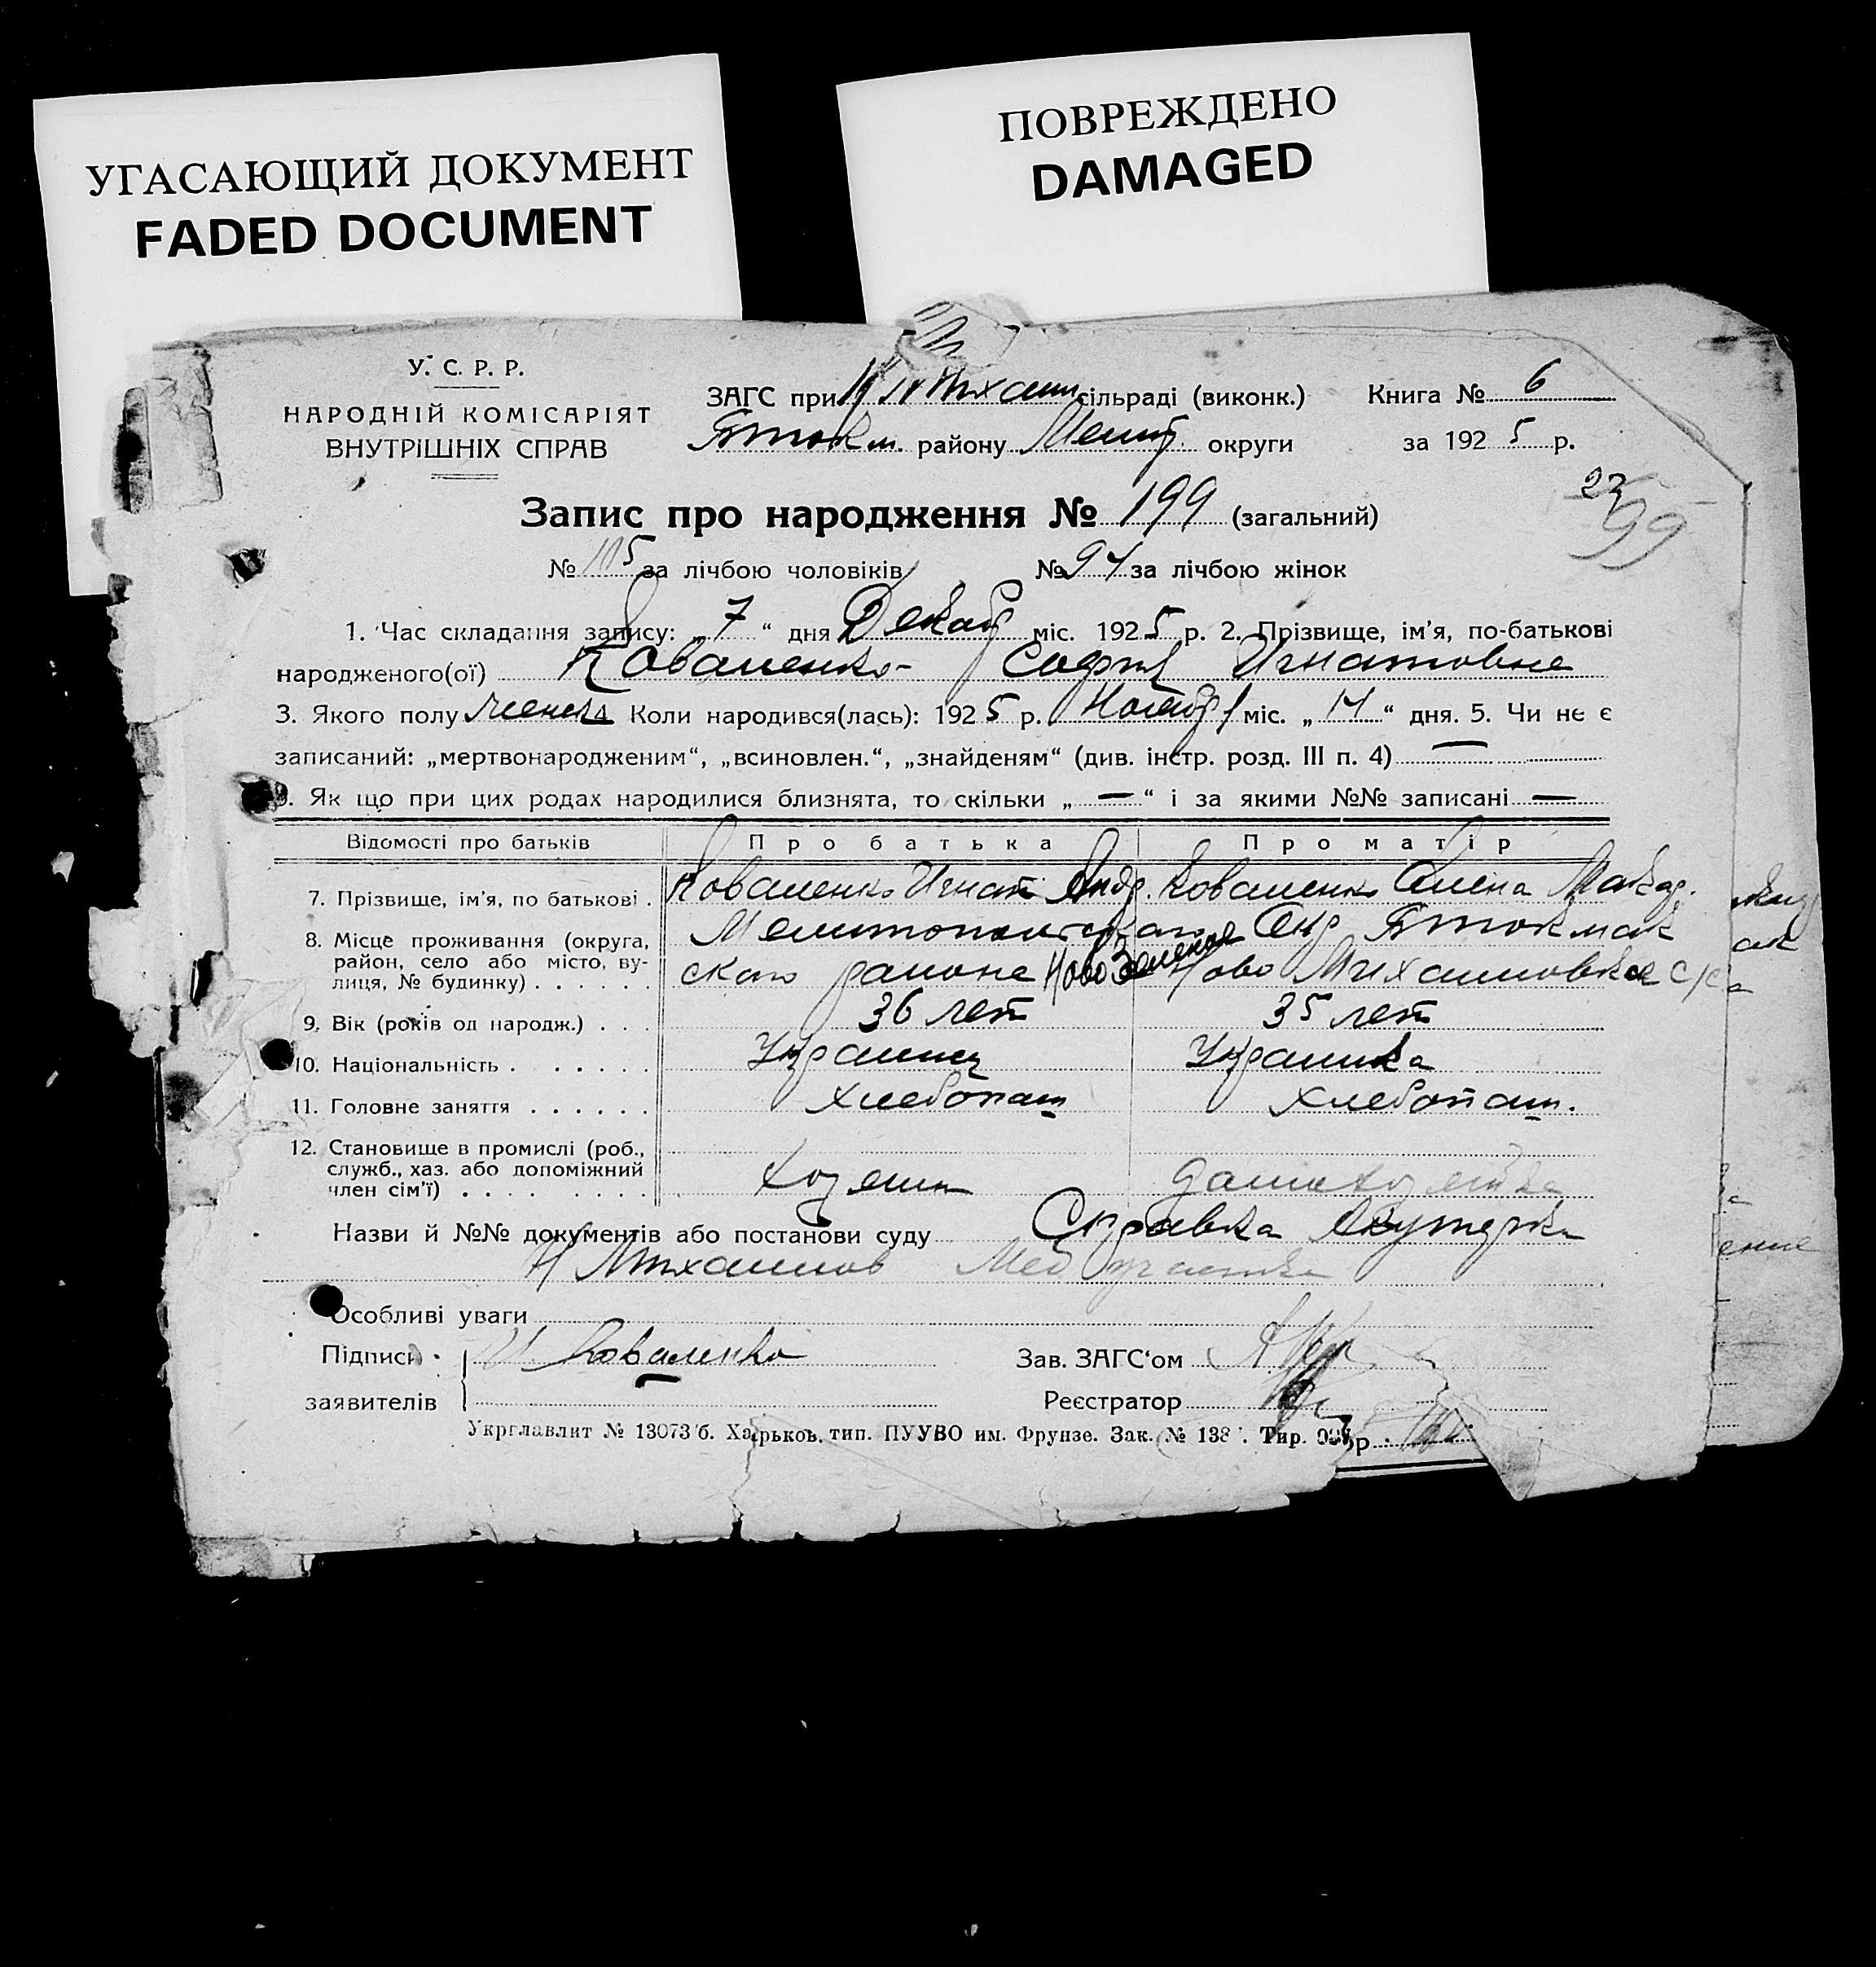 УГАСАЮЩИЙ ДОКУМЕНТ
FADED DOCUMENT
ПОВРЕЖДЕНО
DAMAGED
У. С. Р. Р.
НАРОДНІЙ КОМІСАРІЯТ
ВНУТРІШНІХ СПРАВ
ЗАГС при Н Михайл сільраді (виконк.)
Бток м. району Мелит. округи
Книга № 6
за 1925 р.
Запис про народження № 199 (загальний)
№ 105 за лічбою чоловіків № 94 за лічбою жінок
1. Час складання запису: „7“ дня Декаб міс. 1925 р. 2. Прізвище, ім’я, по-батькові
народженого(ої) Коваленко София Игнатовна
3. Якого полу женск 4. Коли народився(лась): 1925 р. Ноября міс. „14“ дня. 5. Чи не є
записаний: „мертвонародженим“, „всиновлен.“, „знайденям“ (див. інстр. розд. III п. 4) —
6. Як що при цих родах народилися близнята, то скільки „—“ і за якими №№ записані —
Відомості про батьків Про батька Про матір
7. Прізвище, ім’я, по батькові . Коваленко Игнат Андр. Коваленко Елена Макар.
8. Місце проживання (округа, район, село або місто, вулиця, № будинку) . . . . . . Мелитопольского Окр Бтокмак
ского района Ново Зеленое Ново Михайловка с/с
9. Вік (років од народж.) . . . 36 лет 35 лет
10. Національність . . . . . . Украинец Украинка
11. Головне заняття . . . . . . Хлебопаш Хлебопаш.
12. Становище в промислі (роб., служб., хаз. або допоміжний член сім’ї) . . . . . . . . . Хозяин домохозяйка
Назви й №№ документів або постанови суду Справка Акушерки
Н Михайлов Мед участка
Особливі уваги
Підписи заявителів И Коваленко
Зав. ЗАГС‘ом
Реєстратор
Укрглавлит № 13073/б. Харьков, тип. ПУУВО им. Фрунзе. Зак. № 138 . Тир.
99